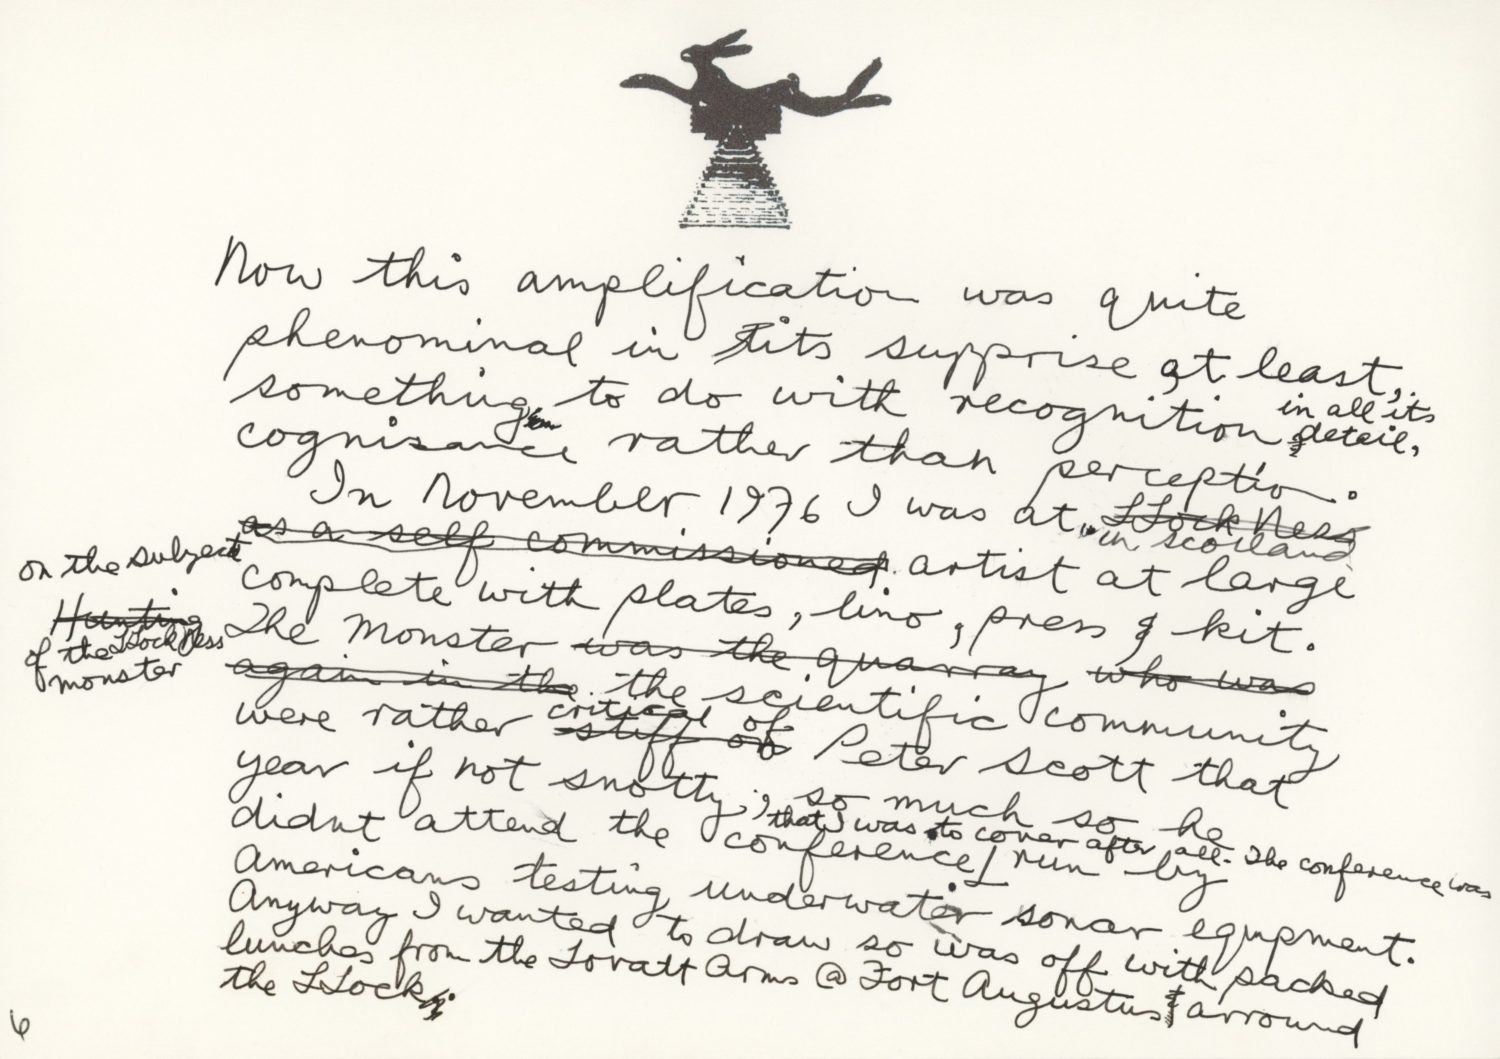 Now this amplification was quite
phenominal in its supprise at least,
something to do with recognition in all its deteil,
cognisance rather than perceptio.
In November 1976 I was at LLock Ness in scotland
as a self commissioned artist at large
on the subject
complete with plates, lino, press & kit.
Hunting
of the LLock Ness
monster
The Monster was the quarray who was
again in the the scientific community
were rather stiff on critical of Peter Scott that
year if not snotty; so much so he
didnt attend the conference that I was to cover after all. The conference was
run by
Americans testing underwater sonar equpment.
Anyway I wanted to draw so was off with packed
lunches from the Lovatt Arms @ Fort Augustus & arround
the LLock
6